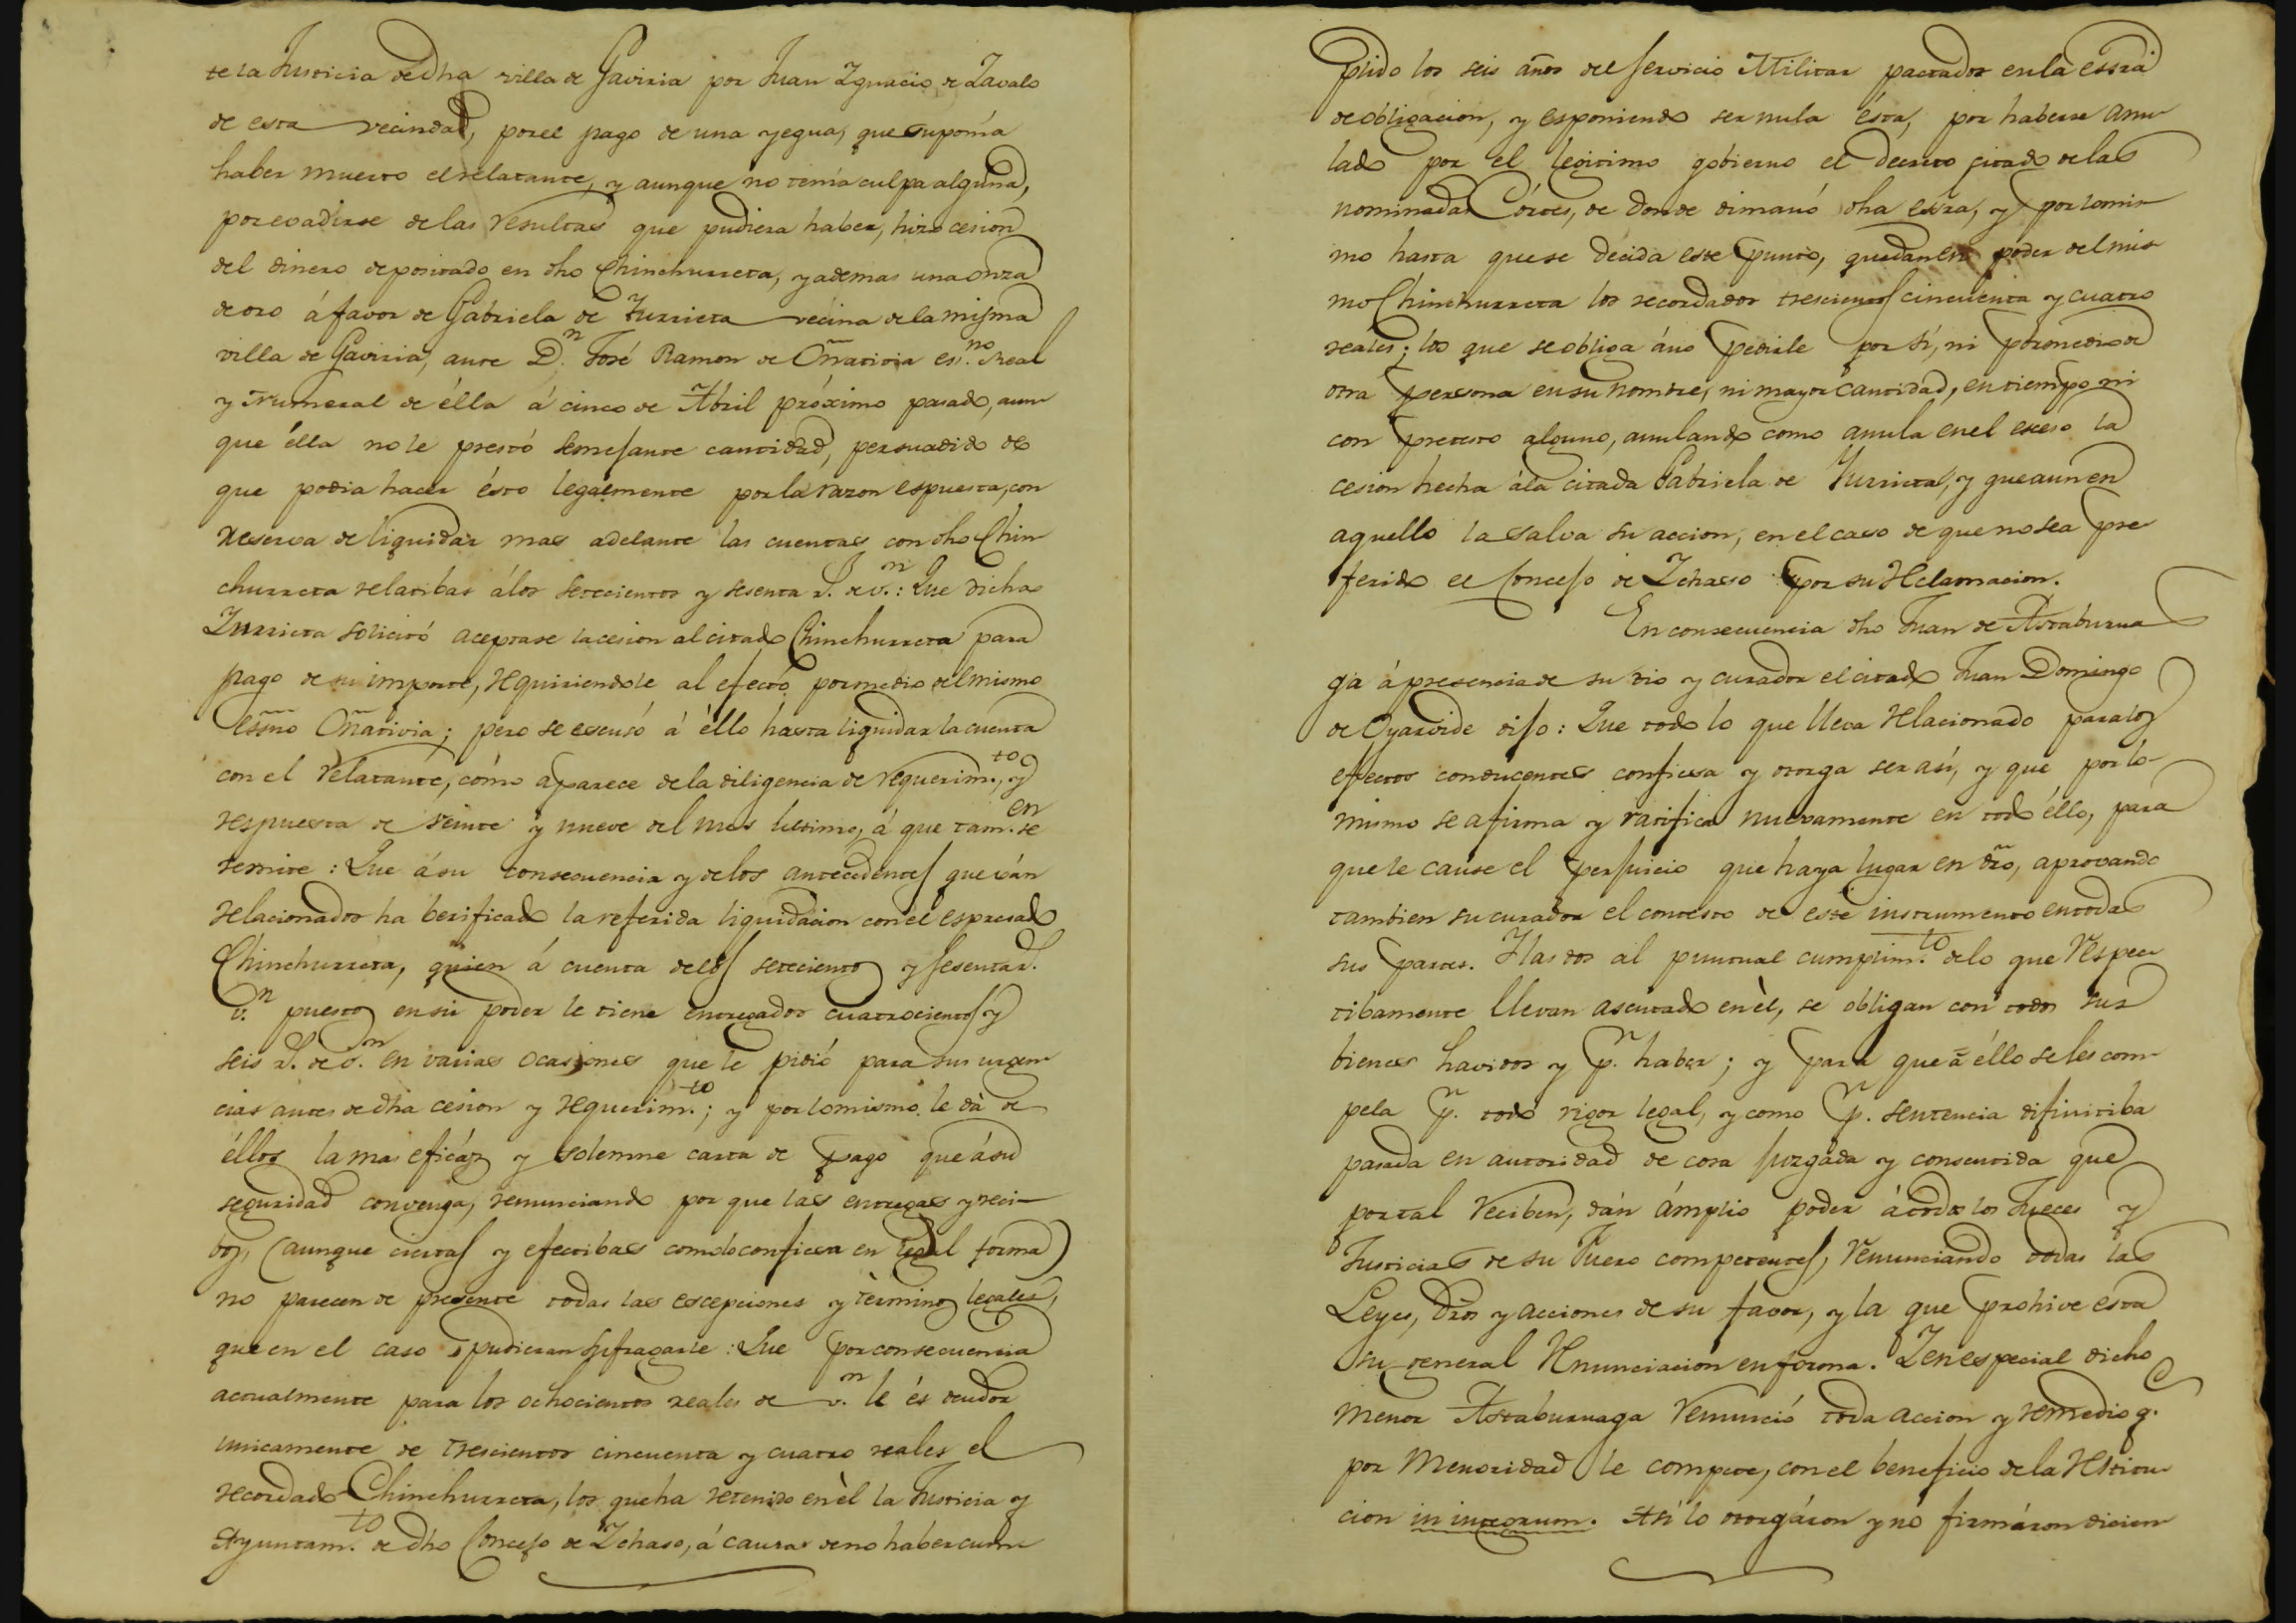 te la Justicia de dha villa de Gaviria por Juan Ygnacio de Zavalo
de esta vecindad, por el pago de una yegua, que suponía
haber muerto el relatante, y aunque no tenía culpa alguna,
por evadirse de las resultas que pudiera haber, hizo cesion
del dinero depositado en dho Chinchurreta, y ademas una onza
de oro á favor de Gabriela de Yurrieta vecina de la misma
villa de Gaviria, ante D.n José Ramon de Oñativia es.no Real
y Numeral de élla á cinco de Abril próximo pasado, aun
que élla no le prestó semejante cantidad, persuadido de
que podia hacer ésto legalmente por la razon espuesta, con
reserva de liquidar mas adelante las cuentas con dho Chin
churreta relatibas á los setecientos y sesenta r.s de v.n: Que dicha
Yurrieta solicitó aceptase la cesion al citado Chinchurreta para
pago de su importe, requiriendole al efecto por medio del mismo
essno Oñativia; pero se escusó á éllo hasta liquidar la cuenta
con el relatante, cómo aparece de la diligencia de requerim.to, y
respuesta de veinte y nueve del mes último, á que tam.en se
remite: Que á su consecuencia y de los antecedentes que ván
relacionados ha berificado la referida liquidacion con el espresado
Chinchurreta, quien á cuenta de los setecientos y sesenta r.s
v.n puestos en su poder le tiene entregados cuatrocientos y
seis r.s de v.n en varias ocasiones que le pidió para sus urgen
cias antes de dha cesion y requerim.to; y por lo mismo le dà de
éllos la mas eficáz y solemne carta de pago que á su
seguridad convenga, renunciando por que las entregas y reci-
bos, (aunque ciertas y efectibas como lo confiesa en legal forma)
no parecen de presente todas las escepciones y tèrminos legales,
que en el caso pudieran sufragarle: Que por consecuencia
actualmente para los ochocientos reales de v.n le és deudor
unicamente de trescientos cincuenta y cuatro reales el
recordado Chinchurreta, los que ha retenido en èl la Justicia y
Ayuntam.to de dho Concejo de Ychaso, á causa de no haber cum
plido los seis años del servicio Militar pactados en la essra
de obligacion, y esponiendo ser nula ésta, por haberse anu
lado por el legitimo gobierno el Decreto citado de las
nominadas Córtes, de donde dimanó dha essra, y por lo mis
mo hasta que se decida este punto, quedan en poder del mis
mo Chinchurreta los recordados trescientos cincuenta y cuatro
reales; los que se obliga á no pedirle por sí, ni por medio de
otra persona en su nombre, ni mayor cantidad, en tiempo ni
con pretesto alguno, anulando como anula en el exceso la
cesion hecha á la citada Gabriela de Yurrieta, y que aun en
aquello la salva su accion, en el caso de que no sea pre
ferido el Concejo de Ychasso por su reclamacion.
En consecuencia dho Juan de Astaburua
ga á presencia de su tio y curador el citado Juan Domingo
de Oyarvide dijo: Que todo lo que lleva relacionado para los
efectos conducentes confiesa y otorga ser así, y que por lo
mismo se afirma y ratifica nuevamente en todo éllo, para
que le cause el perjuicio que haya lugar en dro, aprovando
tambien su curador el contesto de este instrumento en todas
sus partes. Y los dos al puntual cumplim.to de lo que respec
tibamente llevan asentado en èl, se obligan con todos sus
bienes havidos y p.r haber; y para que á éllo se les com
pela p.r todo rigor legal, y como p.r sentencia difinitiba
pasada en autoridad de cosa juzgada y consentida que
por tal reciben, dán ámplio poder á todos los Jueces y
Justicias de su Fuero competentes, renunciando todas las
Leyes, dros y acciones de su favor, y la que prohive esta
su general renunciacion en forma. Y en especial dicho
Menor Astaburuaga renunció toda accion y remedio q.
por Menoridad le compete, con el beneficio de la restitu
cion in integrum. Así lo otorgáron y nó firmáron dicien